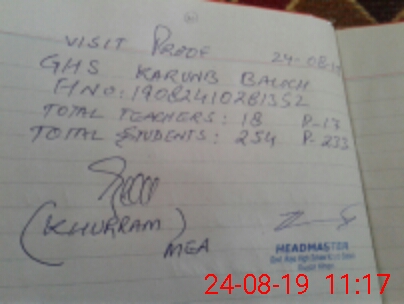 VISIT PROOF 24-08-19
GHS KARUNB BALICH
HNO: 19082410281352
TOTAL TEACHERS: 18 P-13
TOTAL STUDENTS: 254 P-233
(KHURRAM)
MEA
HEADMASTER
24-08-19 11:17